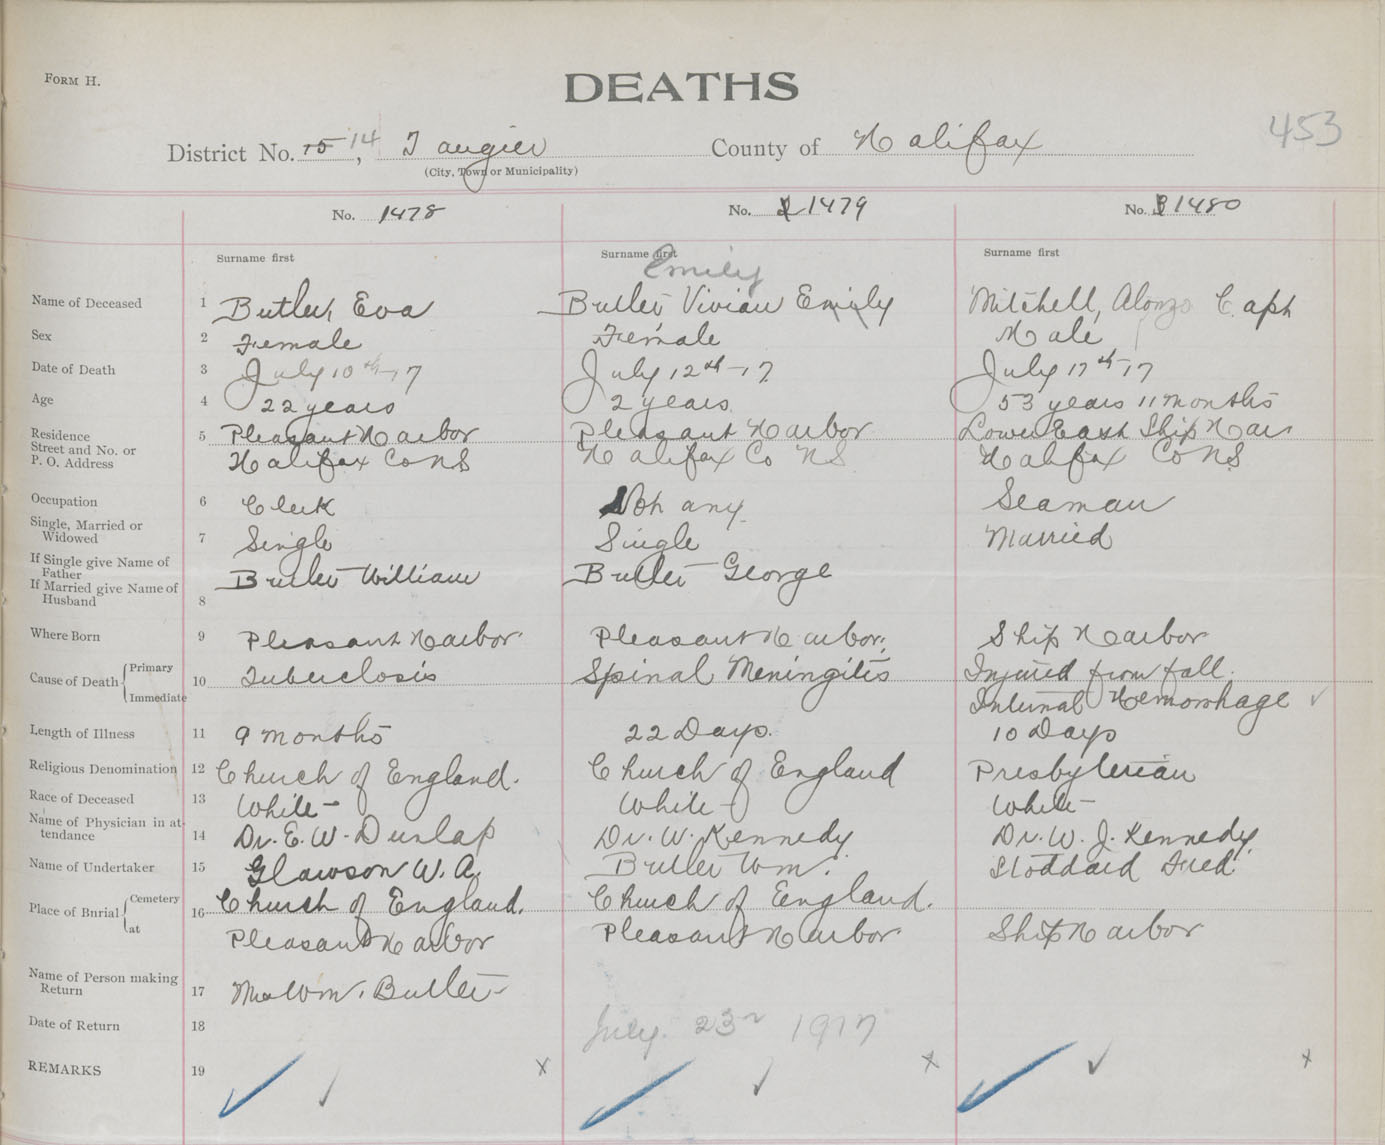 FORM H.
DEATHS
453
District No. 15 14, Tangier County of Halifax
(City, Town or Municipality)
No. 1478 No. 2 1479 No. 3 1480
Surname first Surname first Surname first
Emily
Name of Deceased 1 Butler, Eva Butler Vivian Emily Mitchell, Alonzo Capt
Sex 2 Female Female Male
Date of Death 3 July 10th-17 July 12th-17 July 17th-17
Age 4 22 years 2 years 53 years 11 months
Residence 5 Pleasant Harbor Pleasant Harbor Lower East Ship Har
Street and No. or
P. O. Address Halifax Co NS Halifax Co NS Halifax Co NS
Occupation 6 Clerk Not any Seaman
Single, Married or
Widowed 7 Single Single Married
If Single give Name of
Father Butler William Butler George
If Married give Name of
Husband 8
Where Born 9 Pleasant Harbor Pleasant Harbor. Ship Harbor
Cause of Death Primary 10 Tuberclosis Spinal Meningitis Injured from fall.
Immediate Internal Hemorrhage
Length of Illness 11 9 months 22 Days. 10 Days
Religious Denomination 12 Church of England. Church of England Presbyterian
Race of Deceased 13 White White White
Name of Physician in at-
tendance 14 Dr. E. W. Dunlap Dr. W. Kennedy Dr. W. J. Kennedy
Name of Undertaker 15 Glawson W. A. Butler Wm. Stoddard Fred
Place of Burial Cemetery 16 Church of England. Church of England.
at Pleasant Harbor Pleasant Harbor Ship Harbor
Name of Person making
Return 17 Mrs Wm. Butler
Date of Return 18 July. 23rd 1917
REMARKS 19 x x x